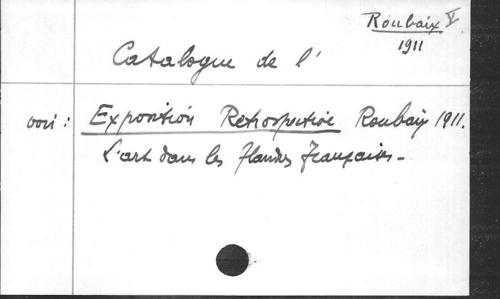 Roubaix V
1911
Catalogue de l'
voir : Exposition Retrospective Roubaix 1911.
L'art dans les Flandres Françaises -